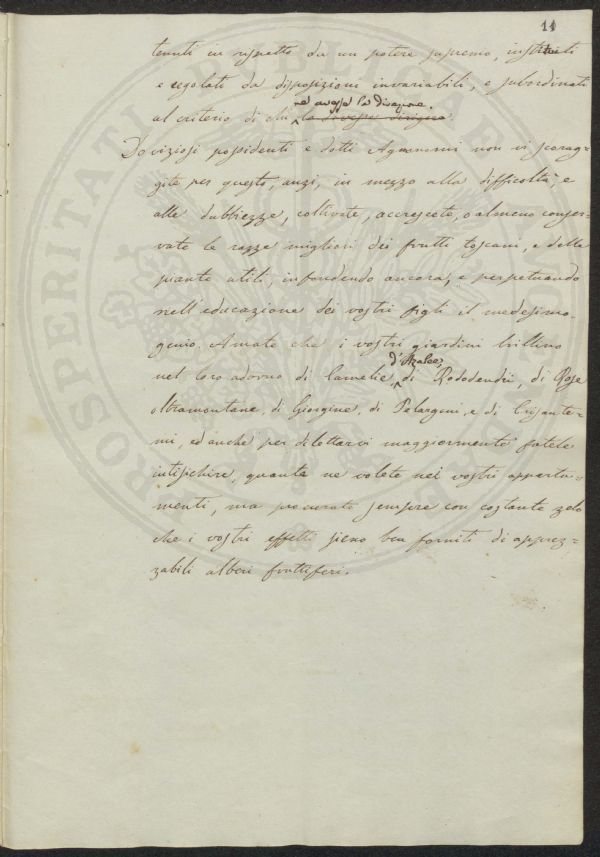 11
tenuti in rispetto da un potere supremo, instituiti
e regolati da disposizioni invariabili, e subordinati
ne avesse la direzione.
al criterio di chi la dovesse dirigere
Doviziosi possidenti e dotti Agronomi non vi scorag=
gite per questo, anzi, in mezzo alla difficoltà, e
alle dubbiezze, coltivate, accrescete, o almeno conser=
vate le razze migliori dei frutti toscani, e delle
piante utili, infondendo ancora, e perpetuando
nell'educazione dei vostri figli il medesimo
genio. Amate che i vostri giardini brillino
d'Azalee,
nel loro adorno di Camelie, di Rododendri, di Rose
oltramontane, di Giorgine, di Pelargoni, e di Crisante=
mi, ed anche per dilettarvi maggiormente fatele
intisichire, quante ne volete nei vostri apparta=
menti, ma procurate sempre con costante zelo
che i vostri effetti sieno ben forniti di apprez=
zabili alberi fruttiferi.
PROSPERITATI PUBLICAE AUGENDAE